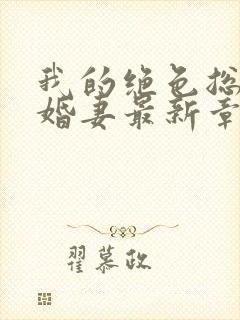 我的绝色总
婚妻最新章
翟慕政